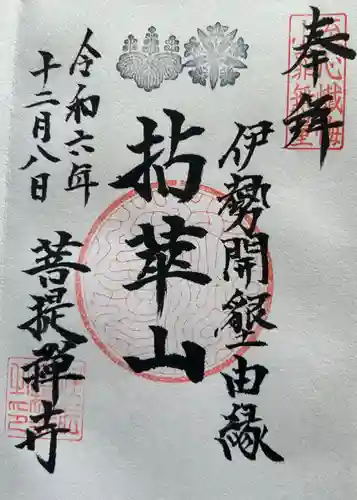 奉拝
伊勢開墾由縁
拈華山
令和六年
十二月八日
菩提禅寺